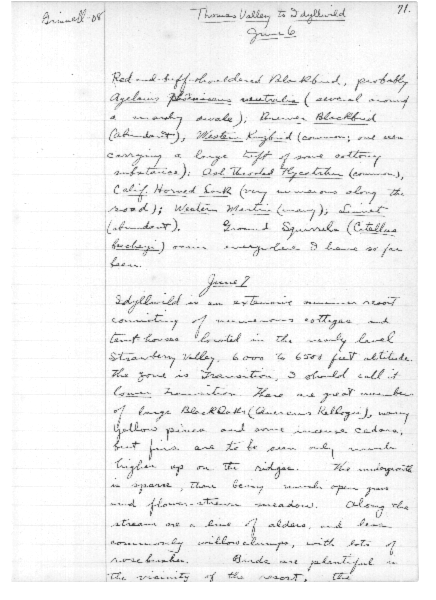 Grinnell-08
Thomas Valley to Idyllwild
71.
June 6
Red-and-buff-shouldered Blackbird, probably
Agelaius neutralis (several around
a marshy swale); Brewer Blackbird
(abundant); Western Kingbird (common; one seen
carrying a large tuft of some cottony
substance); Ash-throated Flycatcher (common),
Calif. Horned Lark (very numerous along the
road); Western Martin (many); Linnet
(abundant). Ground Squirrels (Citellus
beecheyi) occur everywhere I have so far
been.
June 7
Idyllwild is an extensive summer resort
consisting of numerous cottages and
tent houses located in the nearly level
Strawberry Valley, 6000 to 6500 feet altitude.
The zone is Transition, I should call it
lower Transition. There are great numbers
of large Black Oaks (Quercus Kelloggii), many
yellow pines and some incense cedars,
but firs are to be seen only much
higher up on the ridges. The undergrowth
is sparse, there being much open grass
and flower-strewn meadow. Along the
stream are a line of alders, and less
commonly willow clumps, with lots of
rose bushes. Birds are plentiful in
the vicinity of the resort, the